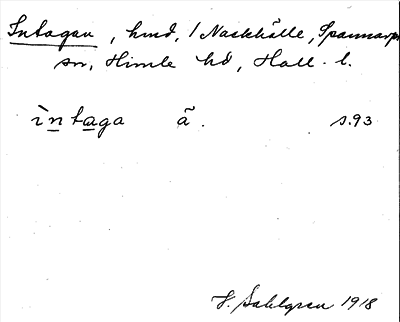 Intagan, hmd, 1 Nackhälle, Spannarps
sn, Himle hd, Hall. l.
ìntaga ã. s.93
J. Sahlgren 1918